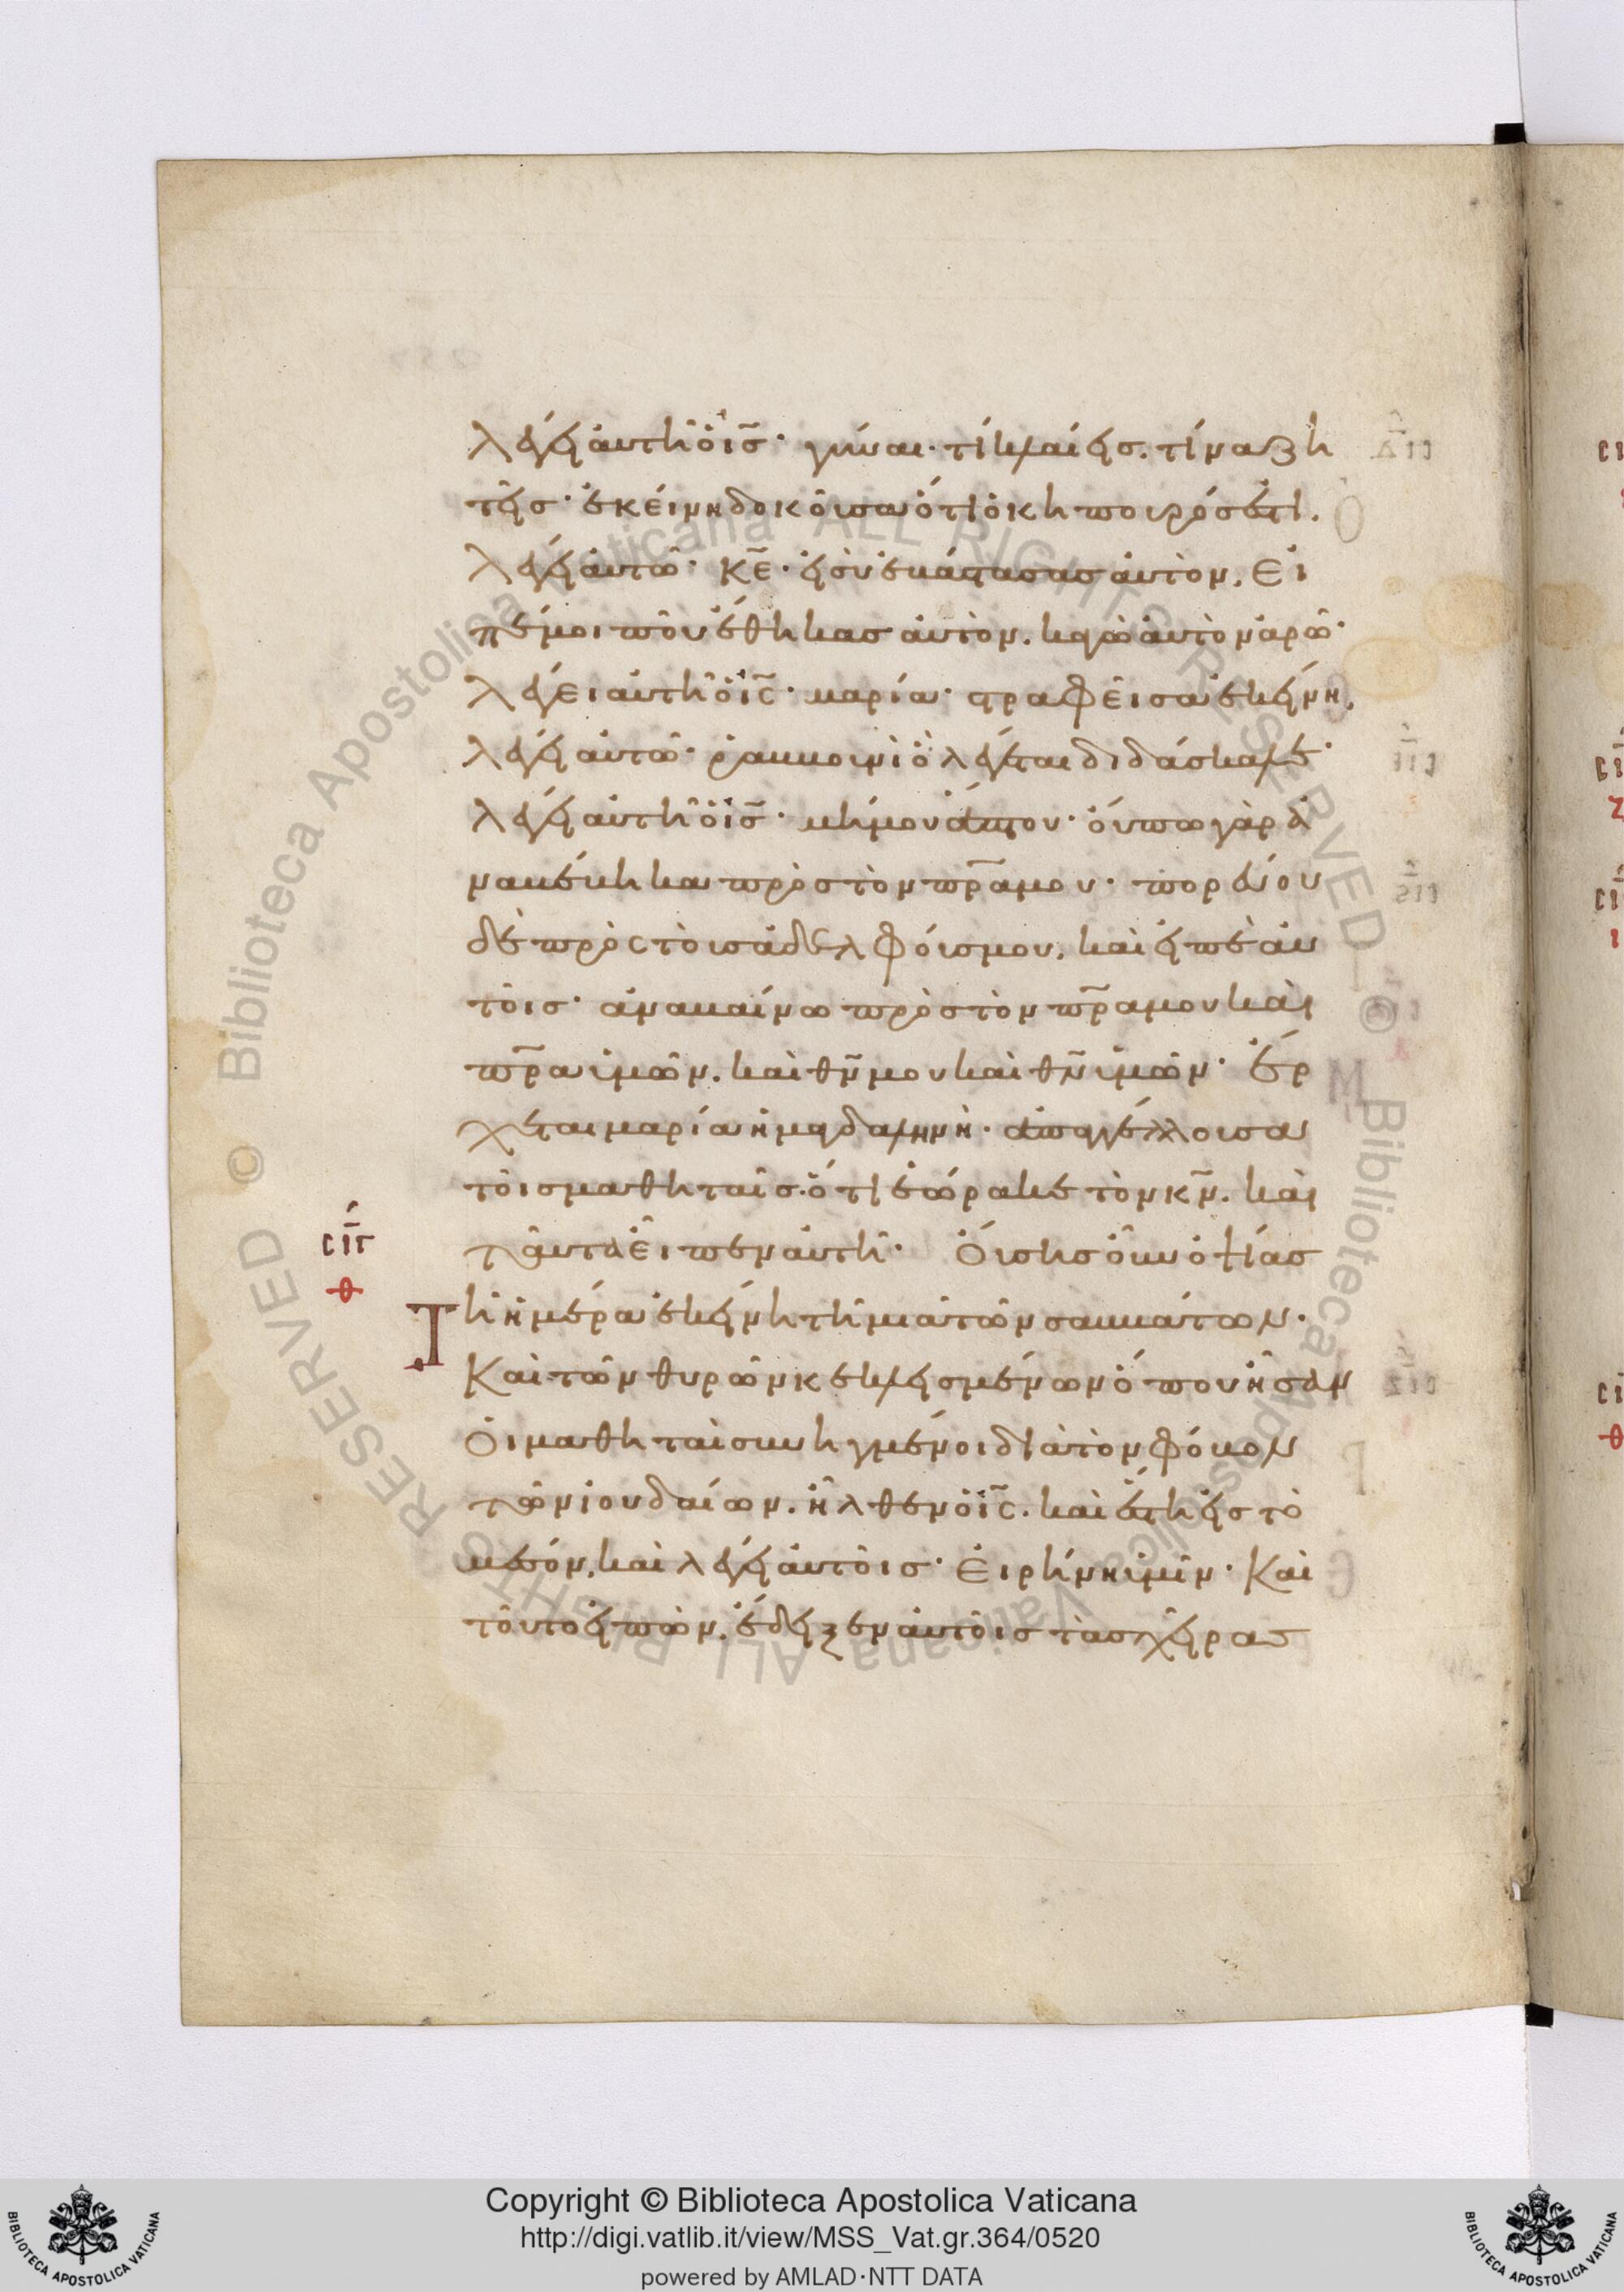 λέγει αὐτῆ ὁ ις̄· γύναι· τί κλαίεις. τίνα ζη
τεῖς· ἐκείνη δοκοῦσα ὅτι ὁ κηπουρός ἐστι.
λέγει αὐτῶ· κε̄· εἰ σὺ ἐβάστασας αὐτὸν. Εἰ
πέ μοι ποῦ ἔθηκας αὐτὸν. κἀγὼ αὐτὸν ἀρῶ·
λέγει αὐτῆ ὁ ις̄· μαρία· στραφεῖσα ἐκείνη.
λέγει αὐτῶ· ῥαββουνὶ ὃ λέγεται διδάσκαλε·
λέγει αὐτῆ ὁ ις̄· μή μου ἅπτου· οὔπω γὰρ ἀ
ναβέβηκα πρὸς τὸν πρ̄α μου· πορεύου
δὲ πρὸς τοὺς ἀδελφούς μου. καὶ εἰπὲ αὐ
τοῖς· ἀναβαίνω πρὸς τὸν πρ̄α μου καὶ
πρ̄α ὑμῶν. καὶ θν̄ μου καὶ θν̄ ὑμῶν· ἔρ
χεται μαρία ἡ μαγδαληνὴ· ἀπαγγέλλουσα
τοῖς μαθηταῖς. ὅτι ἑώρακε τὸν κν̄. καὶ
ταῦτα εἶπεν αὐτῆ· Οὔσης οὖν ὀψίας
τῆ ἡμέρα ἐκείνη τῆ μιᾶ τῶν σαββάτων·
σιγ
θ
Καὶ τῶν θυρῶν κεκλεισμένων ὅπου ἦσαν
Οἱ μαθηταὶ συνηγμένοι διὰ τὸν φόβον
τῶν ἰουδαίων. ἦλθεν ὁ ις̄. καὶ ἔστη εἰς τὸ
μέσον. καὶ λέγει αὐτοῖς· Εἰρήνη ὑμῖν· Καὶ
τοῦτο εἰπὼν. ἔδειξεν αὐτοῖς τὰς χεῖρας
© Biblioteca Apostolica Vaticana ALL RIGHTS RESERVED
© Biblioteca Apostolica Vaticana ALL RIGHTS RESERVED
Copyright © Biblioteca Apostolica Vaticana
http://digi.vatlib.it/view/MSS_Vat.gr.364/0520
powered by AMLAD·NTT DATA
BIBLIOTECA APOSTOLICA VATICANA
BIBLIOTECA APOSTOLICA VATICANA